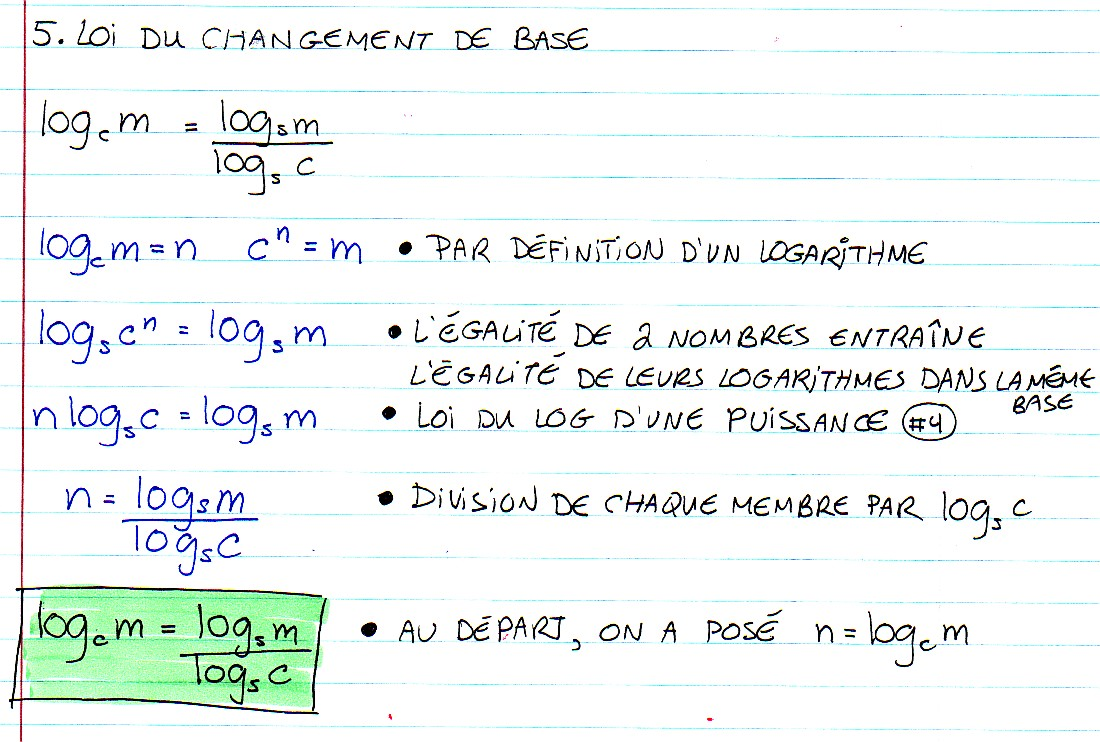 5. Loi DU CHANGEMENT DE BASE
log_c m = log_s m / log_s c
log_c m = n   c^n = m   • PAR DÉFINITION D'UN LOGARITHME
log_s c^n = log_s m   • L'ÉGALITÉ DE 2 NOMBRES ENTRAÎNE
L'ÉGALITÉ DE LEURS LOGARITHMES DANS LA MÊME
BASE
n log_s c = log_s m   • Loi DU LOG D'UNE PUISSANCE #4
n = log_s m / log_s c   • DIVISION DE CHAQUE MEMBRE PAR log_s c
log_c m = log_s m / log_s c   • AU DÉPART, ON A POSÉ n = log_c m